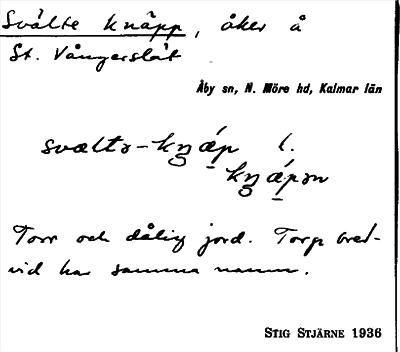 Svälte knäpp, åker å
St. Vångerslät
Åby sn, N. Möre hd, Kalmar län
svælto-kn̥ǽp l.
kn̥ǽpən
Torr och dålig jord. Torp bred-
vid har samma namn.
STIG STJÄRNE 1936